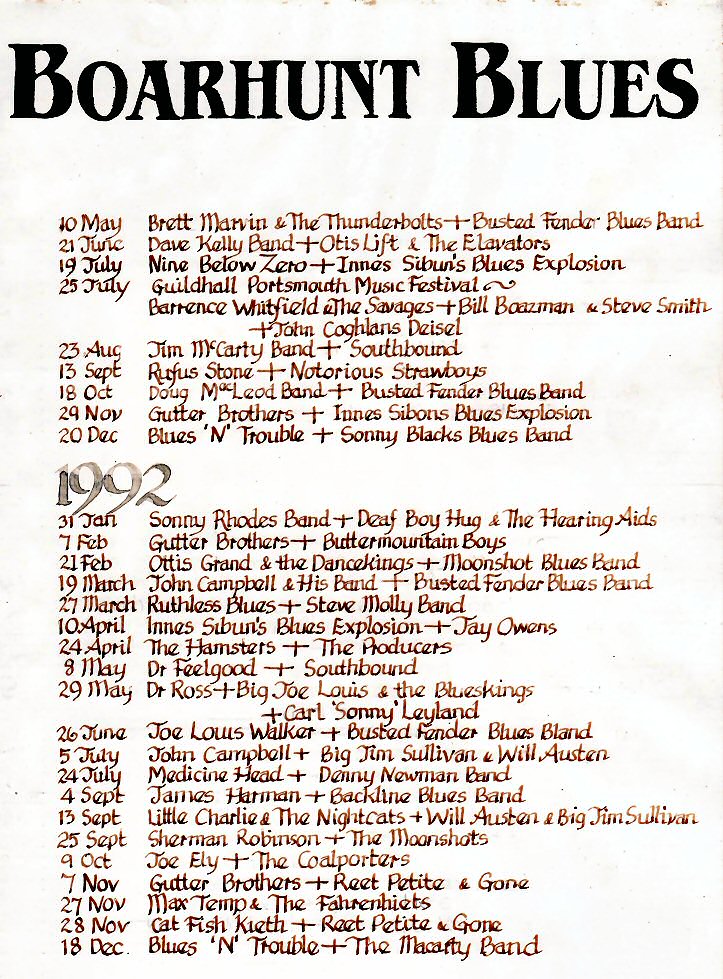 BOARHUNT BLUES
10 May Brett Marvin & The Thunderbolts + Busted Fender Blues Band
21 June Dave Kelly Band + Otis Lift & The Elavators
19 July Nine Below Zero + Innes Sibun's Blues Explosion
25 July Guildhall Portsmouth Music Festival ~
Barrence Whitfield & The Savages + Bill Boazman & Steve Smith
+ John Coghlans Deisel
23 Aug Jim McCarty Band + Southbound
13 Sept Rufus Stone + Notorious Strawboys
18 Oct Doug MacLeod Band + Busted Fender Blues Band
29 Nov Gutter Brothers + Innes Sibons Blues Explosion
20 Dec Blues 'N' Trouble + Sonny Blacks Blues Band
1992
31 Jan Sonny Rhodes Band + Deaf Boy Hug & The Hearing Aids
7 Feb Gutter Brothers + Buttermountain Boys
21 Feb Ottis Grand & the Dancekings + Moonshot Blues Band
19 March John Campbell & His Band + Busted Fender Blues Band
27 March Ruthless Blues + Steve Molly Band
10 April Innes Sibun's Blues Explosion + Jay Owens
24 April The Hamsters + The Producers
8 May Dr Feelgood + Southbound
29 May Dr Ross + Big Joe Louis & the Blueskings
+ Carl 'Sonny' Leyland
26 June Joe Louis Walker + Busted Fender Blues Bland
5 July John Campbell + Big Jim Sullivan & Will Austen
24 July Medicine Head + Denny Newman Band
4 Sept James Harman + Backline Blues Band
13 Sept Little Charlie & The Nightcats + Will Austen & Big Jim Sullivan
25 Sept Sherman Robinson + The Moonshots
9 Oct Joe Ely + The Coalporters
7 Nov Gutter Brothers + Reet Petite & Gone
27 Nov Max Temp & The Fahrenhiets
28 Nov Cat Fish Kieth + Reet Petite & Gone
18 Dec. Blues 'N' Trouble + The Macarty Band